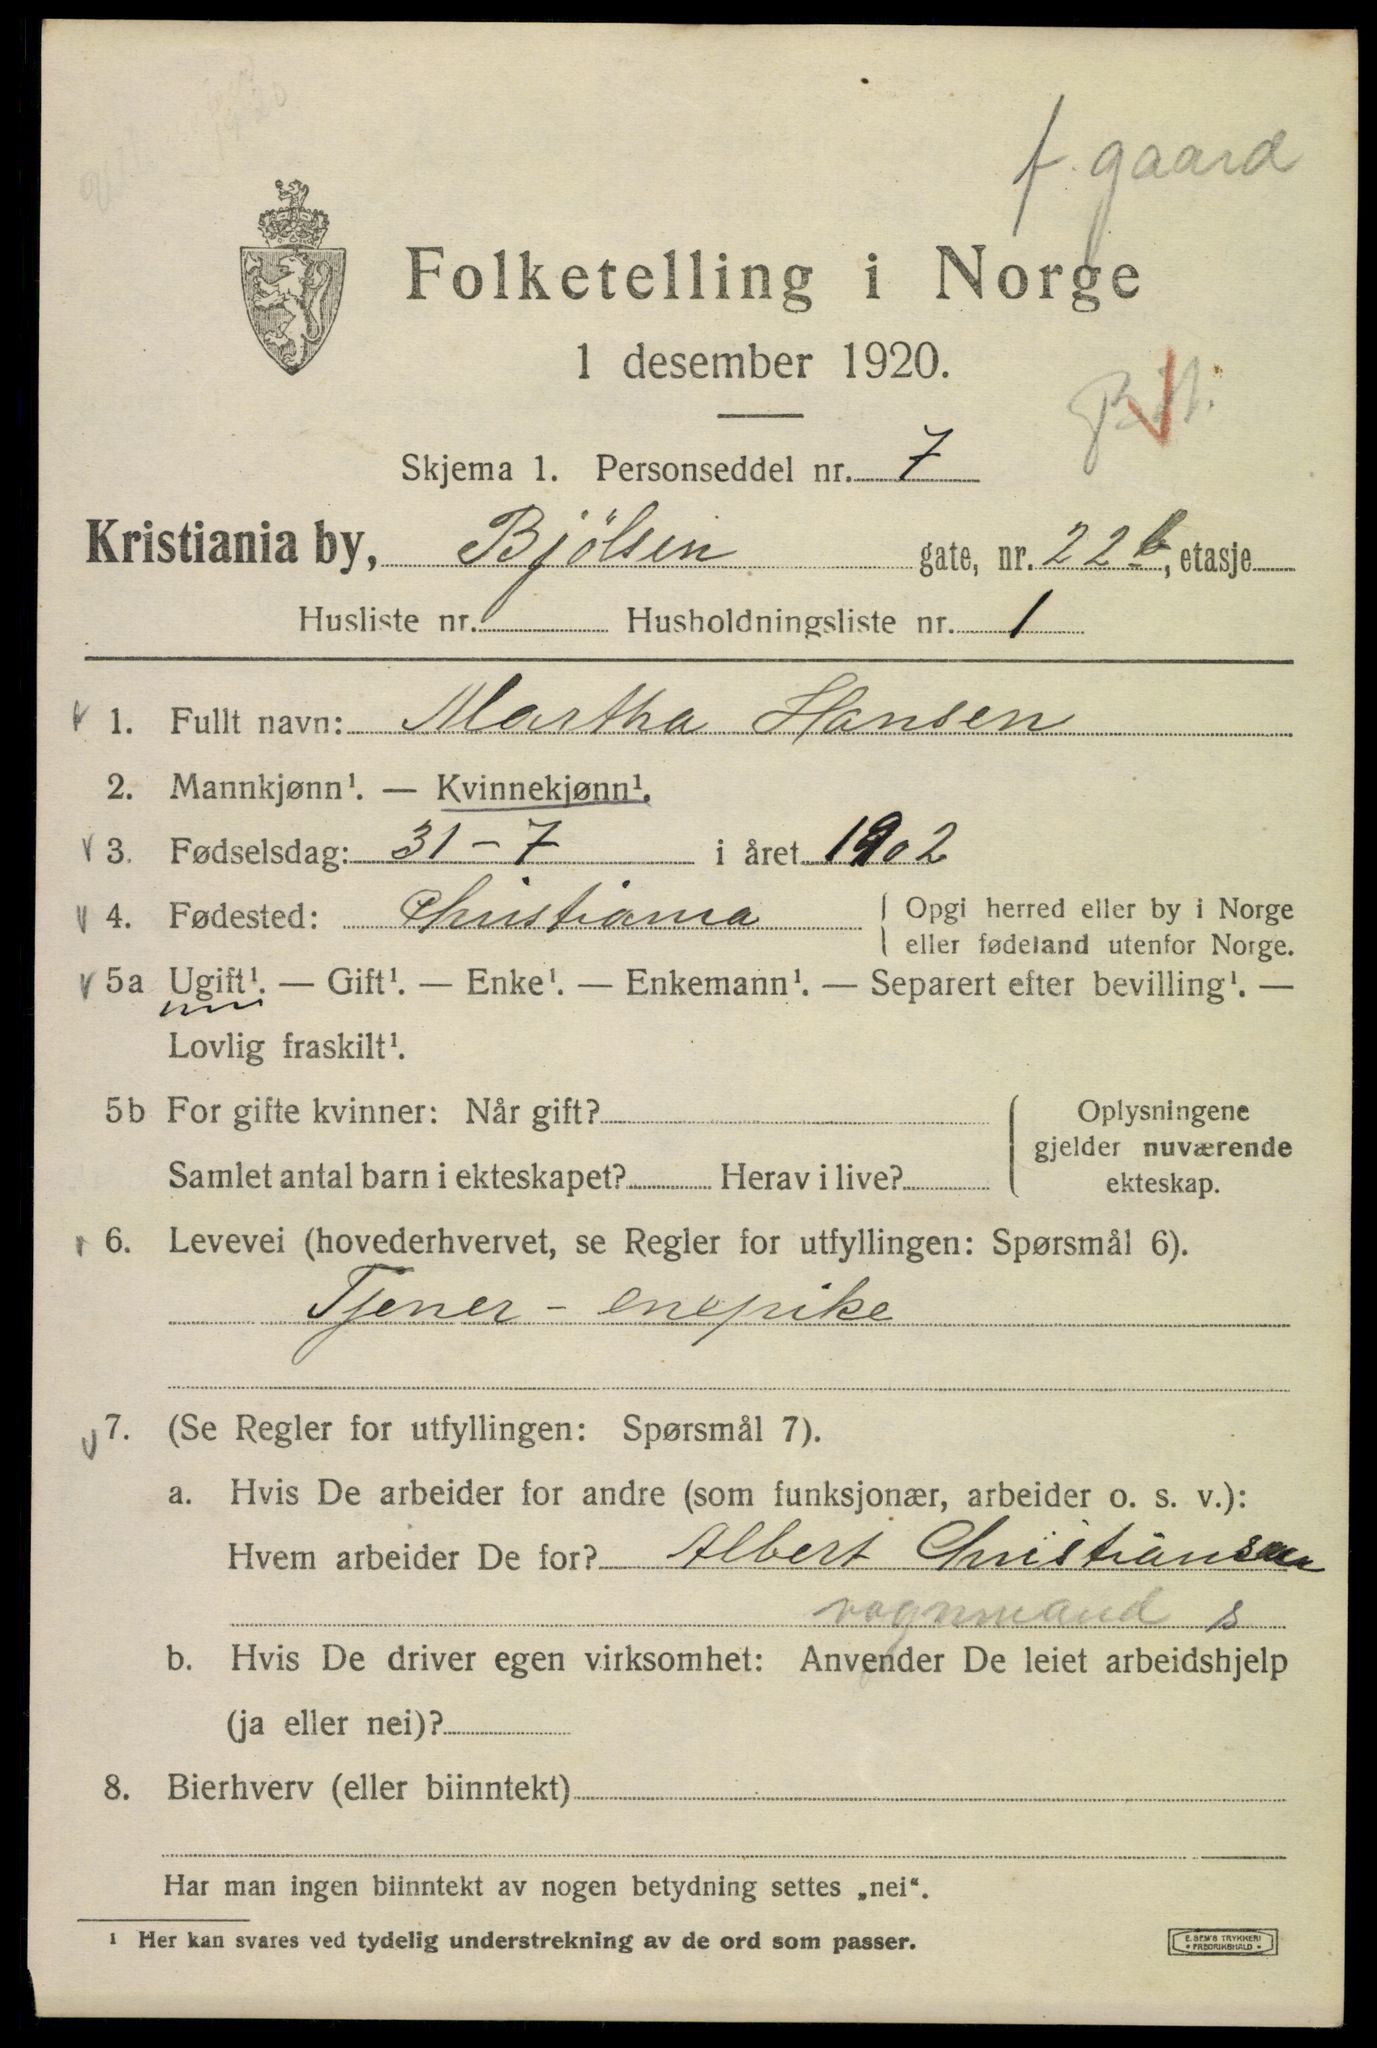 f. gaard
Folketelling i Norge
1 desember 1920.
Skjema 1. Personseddel nr. 7
Kristiania by, Bjölsen gate, nr. 22 b, etasje
Husliste nr. Husholdningsliste nr. 1
1. Fullt navn: Martha Hansen
2. Mannkjønn¹. — Kvinnekjønn¹.
3. Fødselsdag: 31-7 i året 1902
4. Fødested: Christiania { Opgi herred eller by i Norge
eller fødeland utenfor Norge.
5a Ugift¹. — Gift¹. — Enke¹. — Enkemann¹. — Separert efter bevilling¹. —
Lovlig fraskilt¹.
5b For gifte kvinner: Når gift?
Samlet antal barn i ekteskapet? Herav i live?
{ Oplysningene
gjelder nuværende
ekteskap.
6. Levevei (hovederhvervet, se Regler for utfyllingen: Spørsmål 6).
Tjener-enepike
7. (Se Regler for utfyllingen: Spørsmål 7).
a. Hvis De arbeider for andre (som funksjonær, arbeider o. s. v.):
Hvem arbeider De for? Albert Christiansen
vognmand s
b. Hvis De driver egen virksomhet: Anvender De leiet arbeidshjelp
(ja eller nei)?
8. Bierhverv (eller biinntekt)
Har man ingen biinntekt av nogen betydning settes „nei“.
¹ Her kan svares ved tydelig understrekning av de ord som passer.
E. SEM'S TRYKKERI
• FREDRIKSHALD •